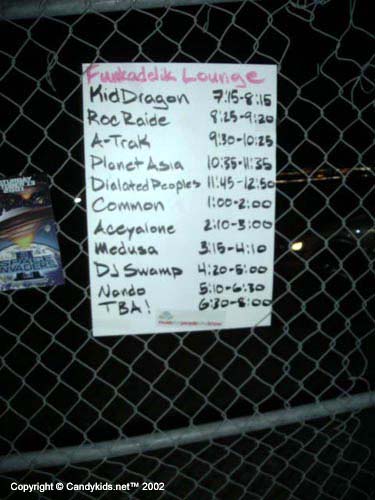 Funkadelik Lounge
KidDragon 7:15-8:15
RocRaide 8:25-9:20
A-Trak 9:30-10:25
Planet Asia 10:35-11:35
Dialated Peoples 11:45-12:50
Common 1:00-2:00
Aceyalone 2:10-3:00
Medusa 3:15-4:10
DJ Swamp 4:20-5:00
Nando 5:10-6:30
TBA! 6:30-8:00
Copyright © Candykids.net™ 2002